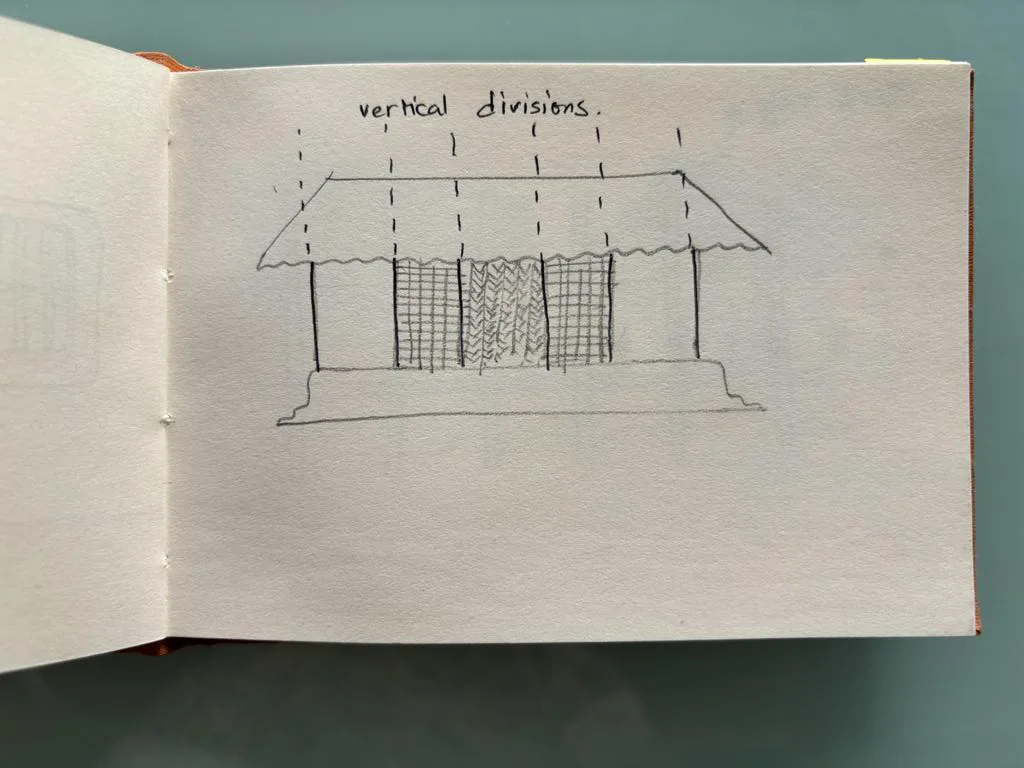 vertical divisions.